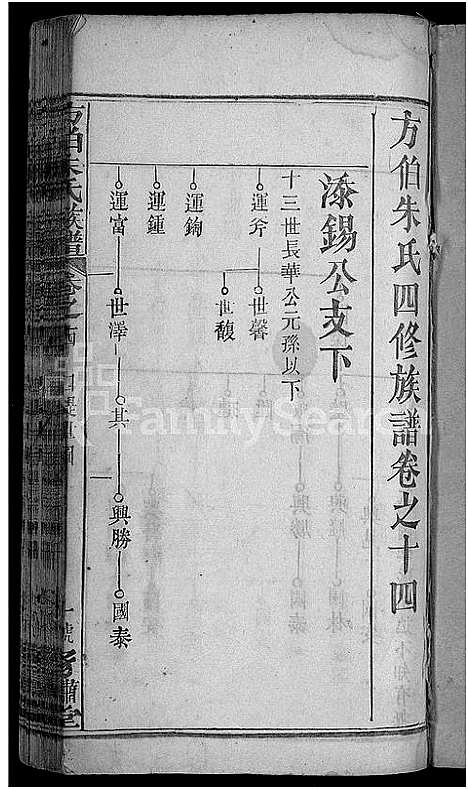 方伯朱氏四修族譜卷之十四
添錫公支下
十三世長華公元孫以下
運斧 世馨
世馥
運鋾
運鍾
運富 世澤 其 興勝 國泰
方伯朱氏族譜 卷之
一號
堂
FamilySearch